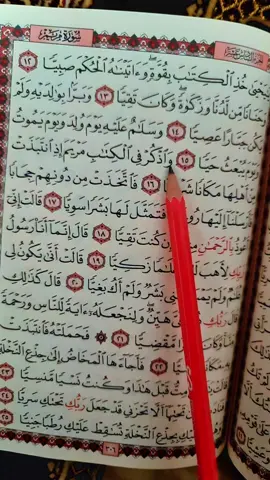 سُورَةُ مَرْيَمَ
يَحْيَىٰ خُذِ ٱلْكِتَٰبَ بِقُوَّةٍ ۖ وَءَاتَيْنَٰهُ ٱلْحُكْمَ صَبِيًّا ١٢
وَحَنَانًا مِّن لَّدُنَّا وَزَكَوٰةً ۖ وَكَانَ تَقِيًّا ١٣ وَبَرًّۢا بِوَٰلِدَيْهِ وَلَمْ
يَكُن جَبَّارًا عَصِيًّا ١٤ وَسَلَٰمٌ عَلَيْهِ يَوْمَ وُلِدَ وَيَوْمَ يَمُوتُ
وَيَوْمَ يُبْعَثُ حَيًّا ١٥ وَٱذْكُرْ فِى ٱلْكِتَٰبِ مَرْيَمَ إِذِ ٱنتَبَذَتْ
مِنْ أَهْلِهَا مَكَانًا شَرْقِيًّا ١٦ فَٱتَّخَذَتْ مِن دُونِهِمْ حِجَابًا
فَأَرْسَلْنَآ إِلَيْهَا رُوحَنَا فَتَمَثَّلَ لَهَا بَشَرًا سَوِيًّا ١٧ قَالَتْ إِنِّىٓ
أَعُوذُ بِٱلرَّحْمَٰنِ مِنكَ إِن كُنتَ تَقِيًّا ١٨ قَالَ إِنَّمَآ أَنَا۠ رَسُولُ
رَبِّكِ لِأَهَبَ لَكِ غُلَٰمًا زَكِيًّا ١٩ قَالَتْ أَنَّىٰ يَكُونُ لِى
غُلَٰمٌ وَلَمْ يَمْسَسْنِى بَشَرٌ وَلَمْ أَكُ بَغِيًّا ٢٠ قَالَ كَذَٰلِكِ
قَالَ رَبُّكِ هُوَ عَلَىَّ هَيِّنٌ ۖ وَلِنَجْعَلَهُۥٓ ءَايَةً لِّلنَّاسِ وَرَحْمَةً
مِّنَّا ۚ وَكَانَ أَمْرًا مَّقْضِيًّا ٢١ ۞ فَحَمَلَتْهُ فَٱنتَبَذَتْ
بِهِۦ مَكَانًا قَصِيًّا ٢٢ فَأَجَآءَهَا ٱلْمَخَاضُ إِلَىٰ جِذْعِ ٱلنَّخْلَةِ
مِتُّ قَبْلَ هَٰذَا وَكُنتُ نَسْيًا مَّنسِيًّا ٢٣
تَحْتِهَآ أَلَّا تَحْزَنِى قَدْ جَعَلَ رَبُّكِ تَحْتَكِ سَرِيًّا ٢٤
إِلَيْكِ بِجِذْعِ ٱلنَّخْلَةِ تُسَٰقِطْ عَلَيْكِ رُطَبًا جَنِيًّا ٢٥
٣٠٦